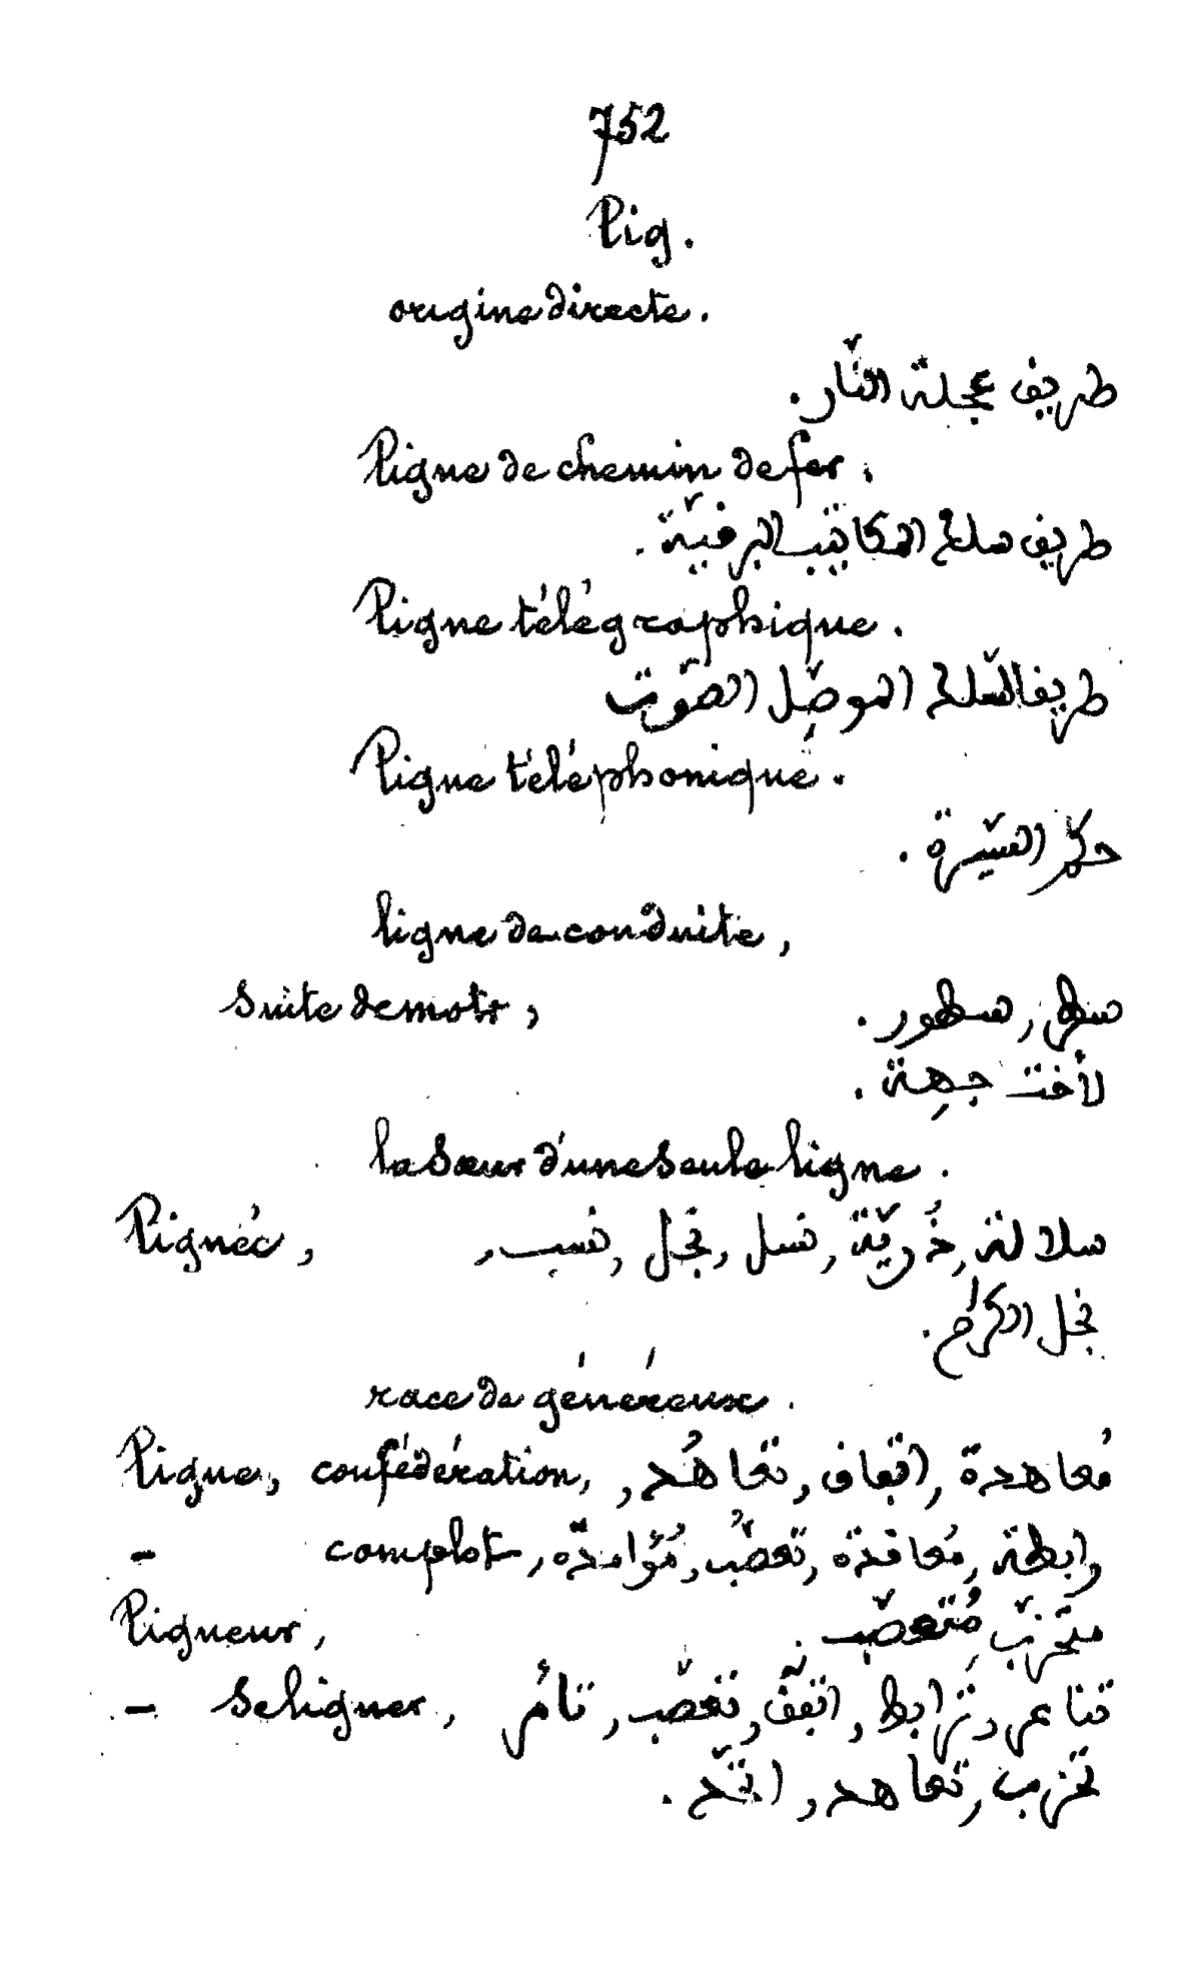 752
Lig.
origine directe.
طريق عجلة النّار.
Ligne de chemin de fer.
طريق سلك المكاتيب البرقيّة.
Ligne télégraphique.
طريق السّلك الموصّل الصّوت
Ligne téléphonique.
حكم السّيرة.
ligne de conduite,
suite de mots, سطر, سطور.
لأخت جهة.
la sœur d'une seule ligne.
Lignée, سلالة, ذُرّيّة, نسل, نجل, نسب,
نجل الكرام.
race de généreux.
Ligue, confédération, مُعاهدة, اتفاق, تعاهُد,
- complot, رابطة, مُعاقدة, تعصّبُ, مُؤامرة,
Ligueur, متحزّب, مُتعصّب.
- se liguer, ترابط, اتّفق, تعصّب, تآمر,
تحزب, تعاهد, اتّحد.